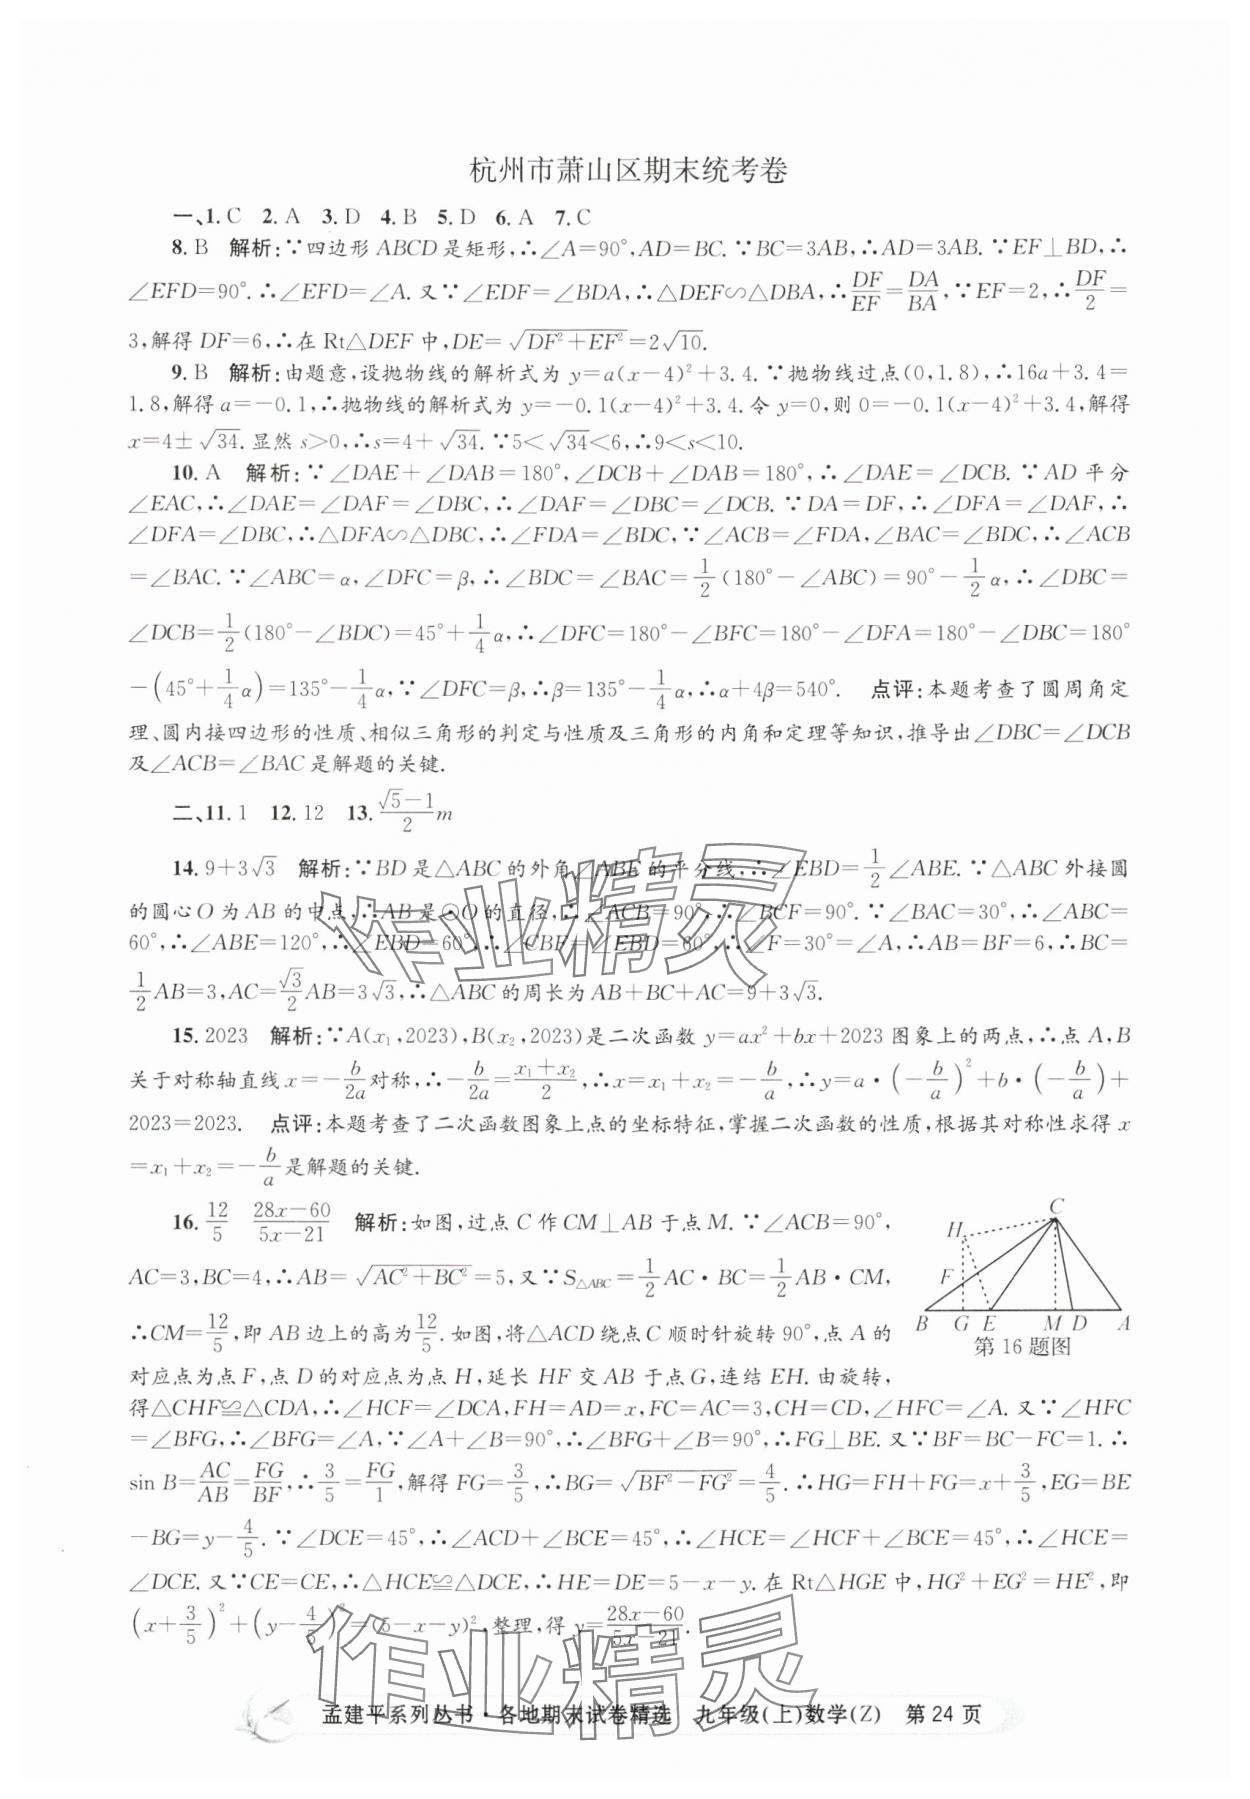 杭州市萧山区期末统考卷
一、1. C 2. A 3. D 4. B 5. D 6. A 7. C
8. B 解析:∵四边形 ABCD 是矩形,∴∠A=90°,AD=BC. ∵BC=3AB,∴AD=3AB. ∵EF⊥BD,∴
∠EFD=90°. ∴∠EFD=∠A. 又∵∠EDF=∠BDA,∴△DEF∽△DBA,∴DF/EF=DA/BA,∵EF=2,∴DF/2=
3,解得 DF=6,∴在 Rt△DEF 中,DE=√(DF²+EF²)=2√10.
9. B 解析:由题意,设抛物线的解析式为 y=a(x-4)²+3.4. ∵抛物线过点(0,1.8),∴16a+3.4=
1.8,解得 a=-0.1,∴抛物线的解析式为 y=-0.1(x-4)²+3.4. 令 y=0,则 0=-0.1(x-4)²+3.4,解得
x=4±√34. 显然 s>0,∴s=4+√34. ∵5<√34<6,∴9<s<10.
10. A 解析:∵∠DAE+∠DAB=180°,∠DCB+∠DAB=180°,∴∠DAE=∠DCB. ∵AD 平分
∠EAC,∴∠DAE=∠DAF=∠DBC,∴∠DAF=∠DBC=∠DCB. ∵DA=DF,∴∠DFA=∠DAF,∴
∠DFA=∠DBC,∴△DFA∽△DBC,∴∠FDA=∠BDC,∵∠ACB=∠FDA,∠BAC=∠BDC,∴∠ACB
=∠BAC. ∵∠ABC=α,∠DFC=β,∴∠BDC=∠BAC=1/2(180°-∠ABC)=90°-1/2α,∴∠DBC=
∠DCB=1/2(180°-∠BDC)=45°+1/4α,∴∠DFC=180°-∠BFC=180°-∠DFA=180°-∠DBC=180°
-(45°+1/4α)=135°-1/4α,∵∠DFC=β,∴β=135°-1/4α,∴α+4β=540°. 点评:本题考查了圆周角定
理、圆内接四边形的性质、相似三角形的判定与性质及三角形的内角和定理等知识,推导出∠DBC=∠DCB
及∠ACB=∠BAC 是解题的关键.
二、11. 1 12. 12 13. (√5-1)/2 m
14. 9+3√3 解析:∵BD 是△ABC 的外角∠ABE 的平分线,∴∠EBD=1/2∠ABE. ∵△ABC 外接圆
的圆心 O 为 AB 的中点,∴AB 是⊙O 的直径,∴∠ACB=90°,∴∠BCF=90°. ∵∠BAC=30°,∴∠ABC=
60°,∴∠ABE=120°,∴∠EBD=60°,∴∠CBF=∠EBD=60°,∴∠F=30°=∠A,∴AB=BF=6,∴BC=
1/2AB=3,AC=√3/2AB=3√3,∴△ABC 的周长为 AB+BC+AC=9+3√3.
15. 2023 解析:∵A(x₁,2023),B(x₂,2023)是二次函数 y=ax²+bx+2023 图象上的两点,∴点 A,B
关于对称轴直线 x=-b/2a对称,∴-b/2a=(x₁+x₂)/2,∴x=x₁+x₂=-b/a,∴y=a·(-b/a)²+b·(-b/a)+
2023=2023. 点评:本题考查了二次函数图象上点的坐标特征,掌握二次函数的性质,根据其对称性求得 x
=x₁+x₂=-b/a是解题的关键.
16. 12/5 (28x-60)/(5x-21) 解析:如图,过点 C 作 CM⊥AB 于点 M. ∵∠ACB=90°,
AC=3,BC=4,∴AB=√(AC²+BC²)=5,又∵S△ABC=1/2AC·BC=1/2AB·CM,
∴CM=12/5,即 AB 边上的高为12/5. 如图,将△ACD 绕点 C 顺时针旋转 90°,点 A 的
对应点为点 F,点 D 的对应点为点 H,延长 HF 交 AB 于点 G,连结 EH. 由旋转,
得△CHF≌△CDA,∴∠HCF=∠DCA,FH=AD=x,FC=AC=3,CH=CD,∠HFC=∠A. 又∵∠HFC
=∠BFG,∴∠BFG=∠A,∵∠A+∠B=90°,∴∠BFG+∠B=90°,∴FG⊥BE. 又∵BF=BC-FC=1. ∴
sin B=AC/AB=FG/BF,∴3/5=FG/1,解得 FG=3/5,∴BG=√(BF²-FG²)=4/5. ∴HG=FH+FG=x+3/5,EG=BE
-BG=y-4/5. ∵∠DCE=45°,∴∠ACD+∠BCE=45°,∴∠HCE=∠HCF+∠BCE=45°,∴∠HCE=
∠DCE. 又∵CE=CE,∴△HCE≌△DCE,∴HE=DE=5-x-y. 在 Rt△HGE 中,HG²+EG²=HE²,即
(x+3/5)²+(y-4/5)²=(5-x-y)²,整理,得 y=(28x-60)/(5x-21).
C
H
F
B G E M D A
第 16 题图
作业精灵
作业精灵
孟建平系列丛书·各地期末试卷精选 九年级(上)数学(Z) 第 24 页